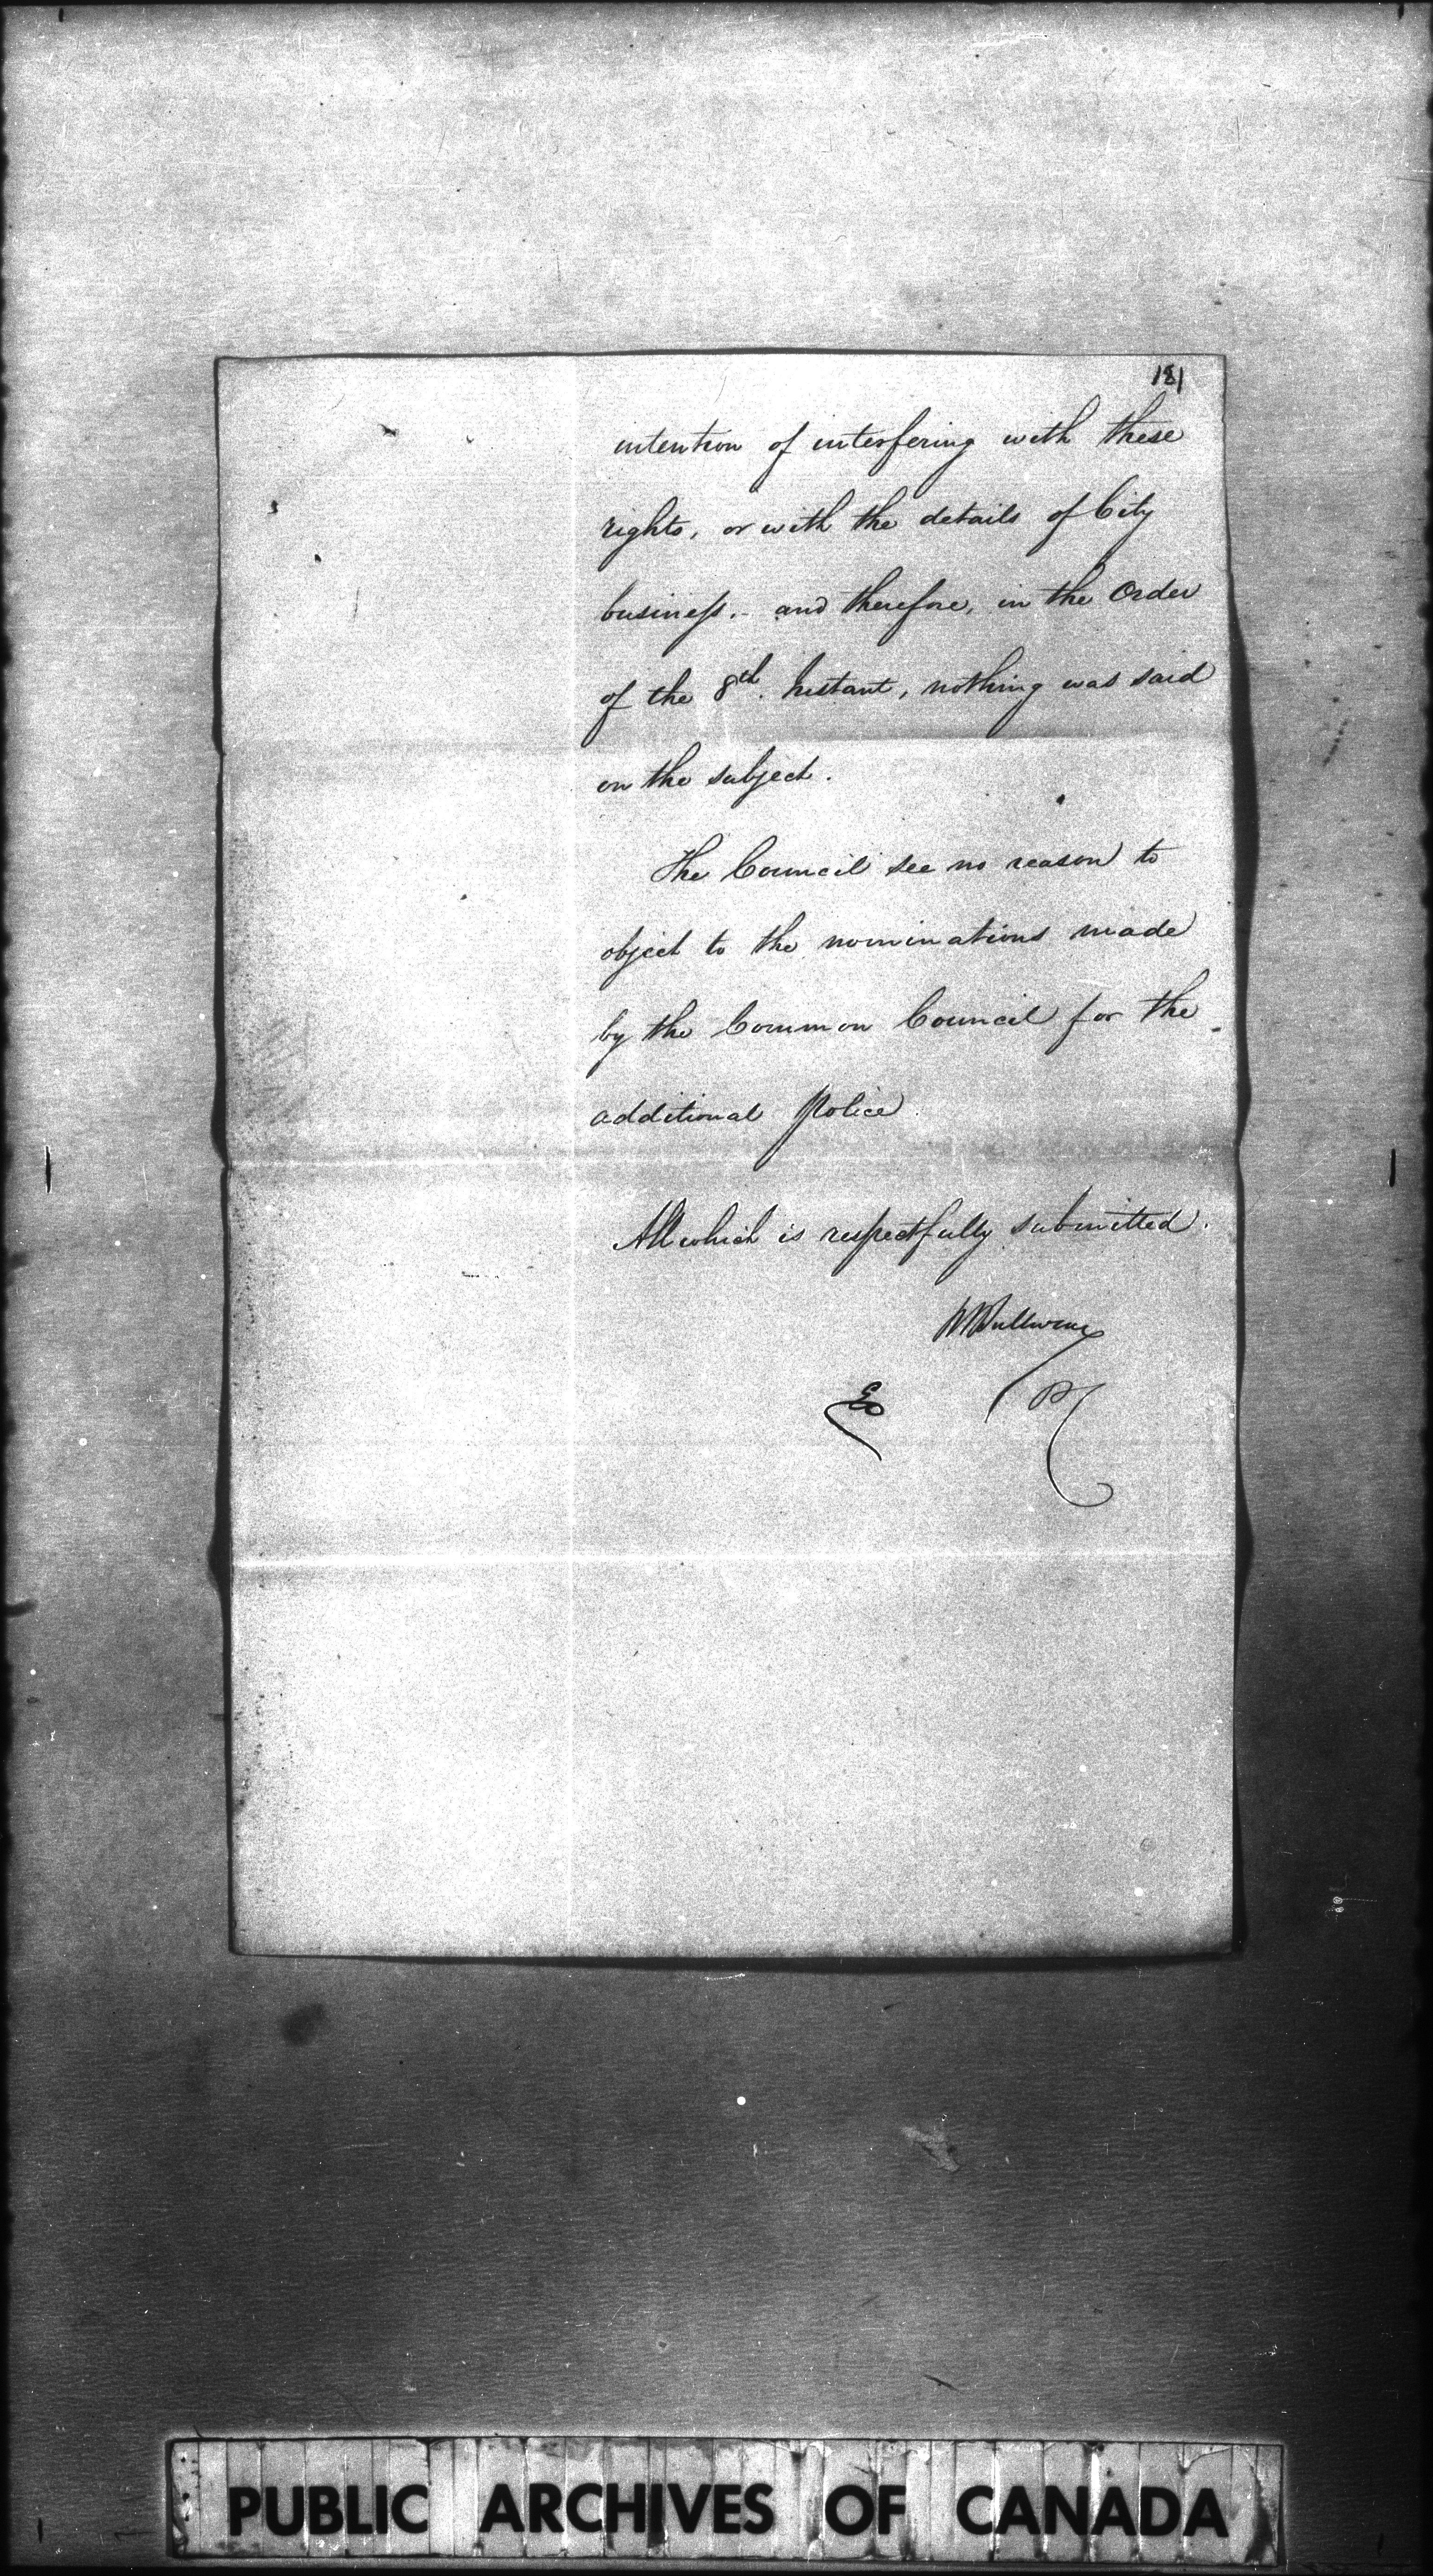 181
intention of interfering with these
rights, or with the details of City
business. - and therefore, in the Order
of the 8th. Instant, nothing was said
on the subject.
The Council see no reason to
object to the nominations made
by the Common Council for the
additional Police.
All which is respectfully submitted.
PUBLIC ARCHIVES OF CANADA